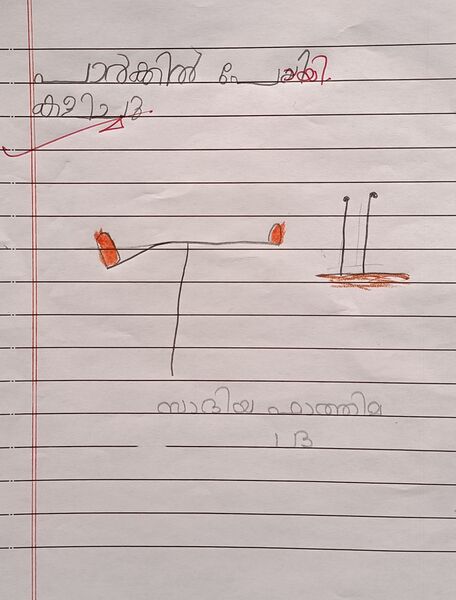 പാർക്കിൽ പോയി
കളിച്ചു.
സാദിയ ഫാത്തിമ
1 B